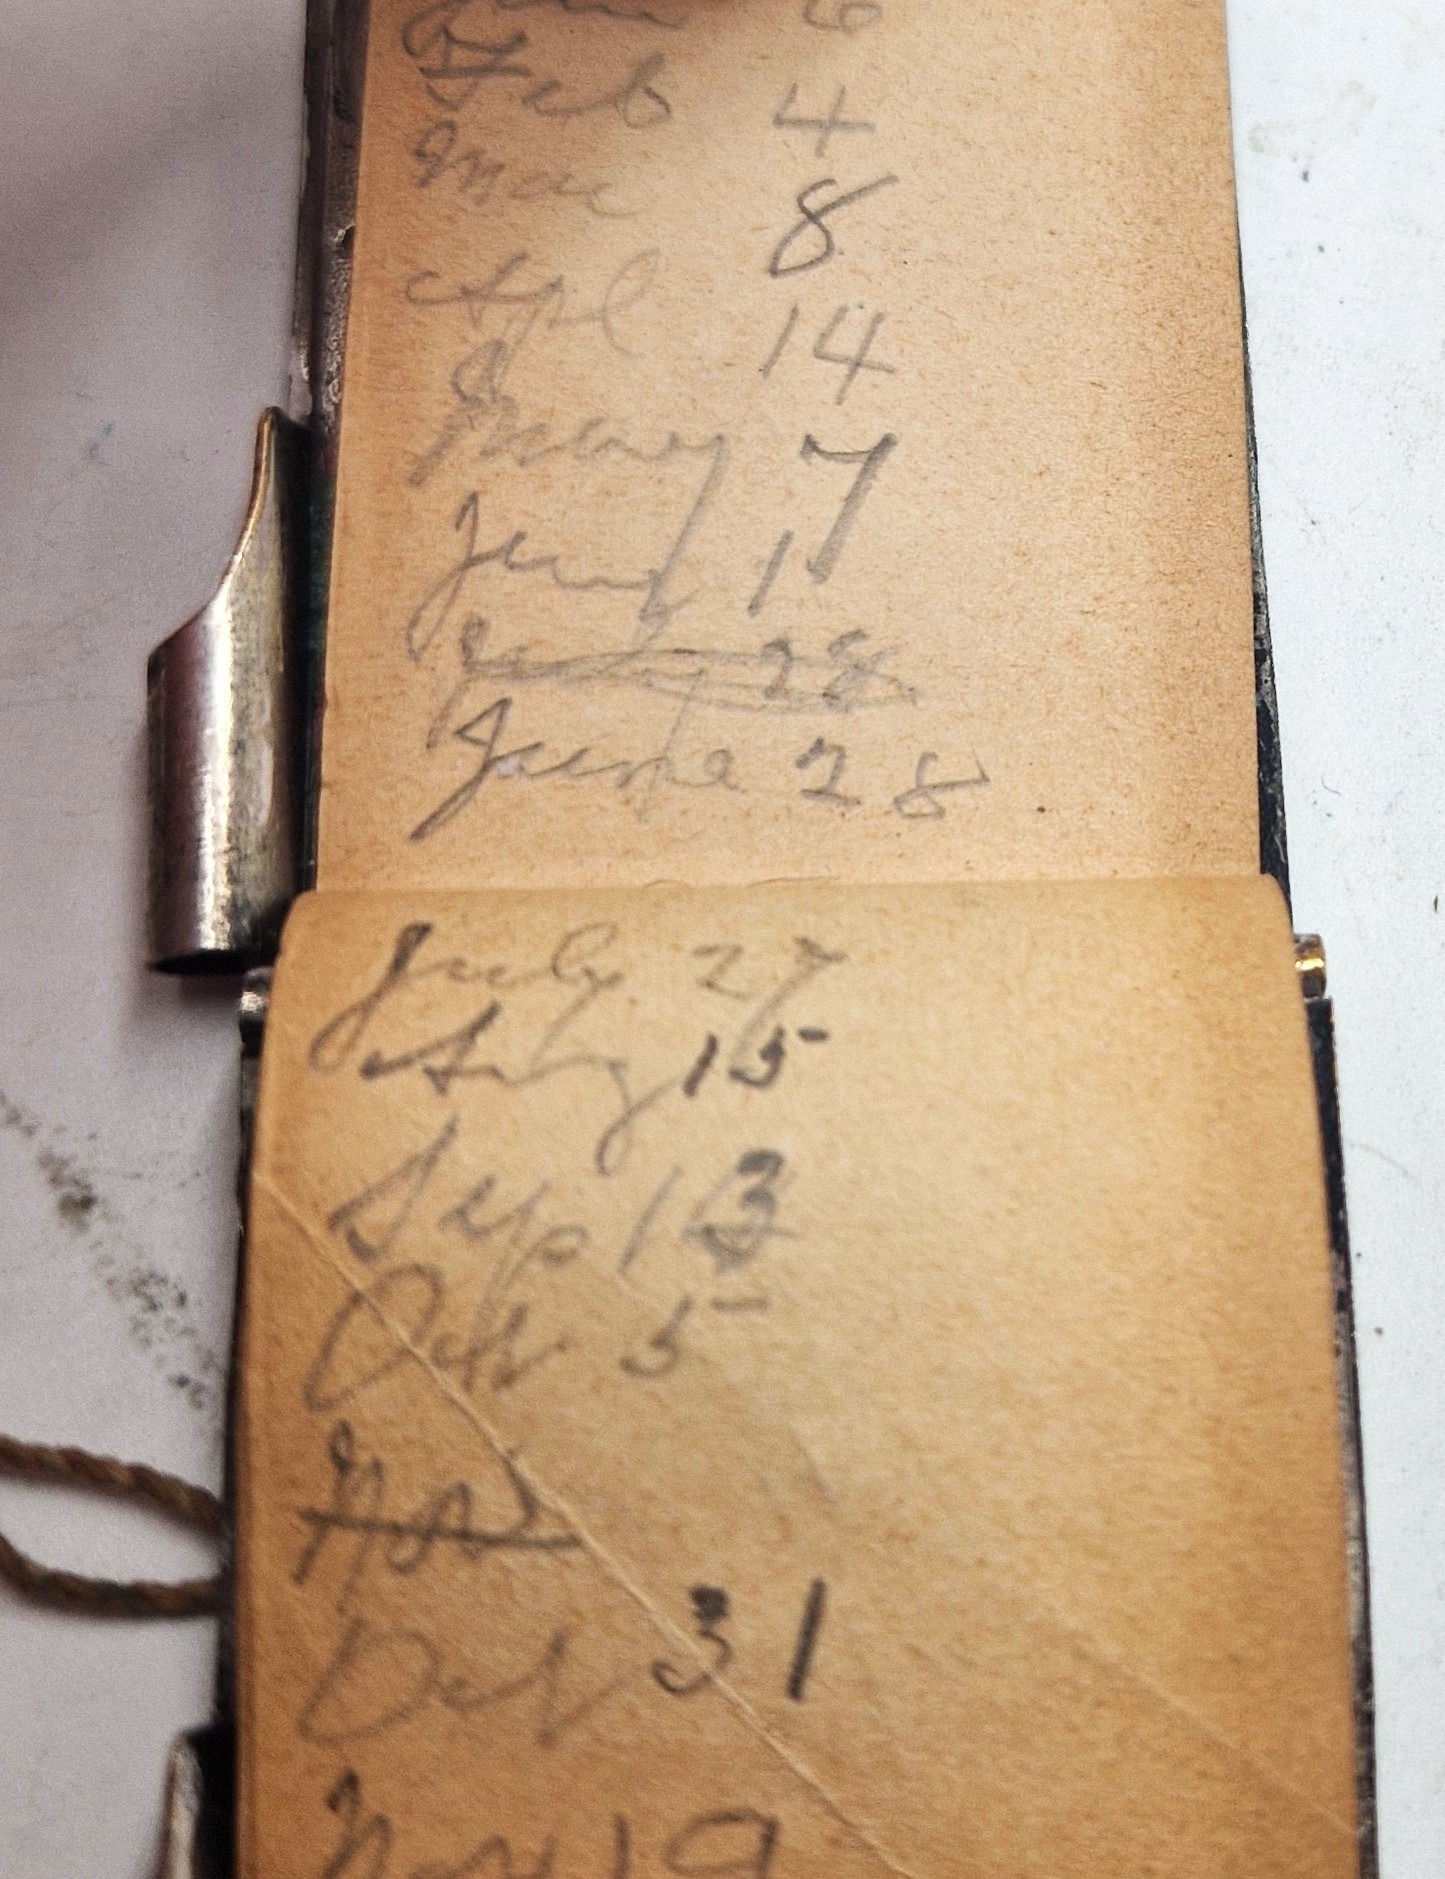 Jan 6
Feb 4
Mar 8
Apl 14
May 7
June 1
July 28
June 28
July 27
Aug 15
Sep 13
Oct 5
Nov
Oct 31
Nov 19